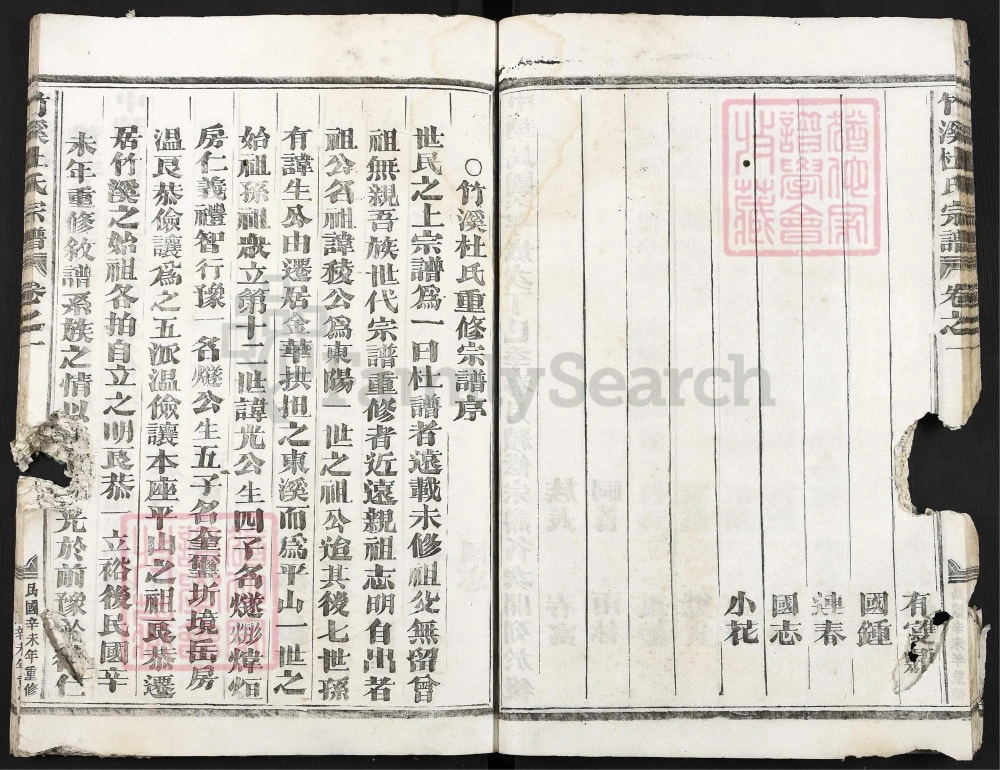 竹溪杜氏宗譜
卷之一
有
國鍾
連春
國志
小花
譜學會
藏
FamilySearch
○竹溪杜氏重修宗譜序
世民之上宗譜為一曰杜譜者遠載未修祖父無留曾
祖無親吾族世代宗譜重修者近遠親祖志明自出者
祖公名祖諱稜公為東陽一世之祖公迨其後七世孫
有諱生外由遷居金華拱坦之東溪而為平山一世之
始祖孫祖眾立第十二世諱光公生四子名燧𤒪煒烜
房仁義禮智行豫一名燧公生五子名奎璽圻境岳房
溫良恭儉讓為之五派溫儉讓本座平山之祖良恭遷
居竹溪之始祖各拍自立之明良恭一立裕後民國辛
未年重修敘譜系族之情以 光於前豫於 仁
竹溪杜氏宗譜
卷之一
民國辛未年重修